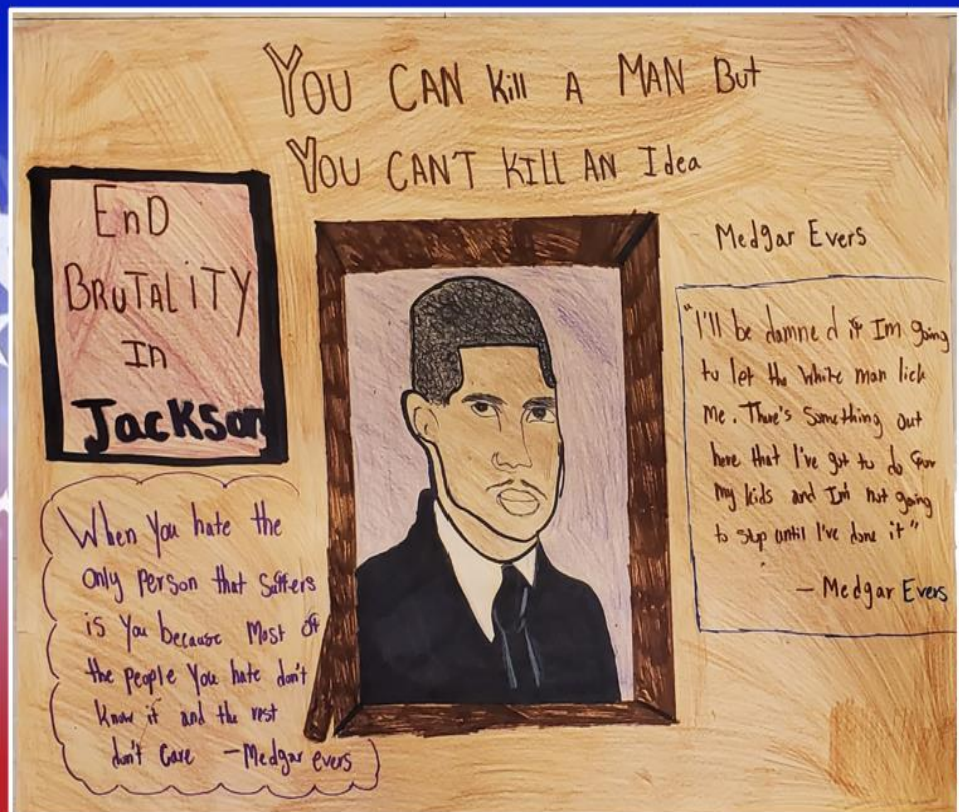 YOU CAN Kill A MAN But
YOU CAN'T KILL AN Idea
EnD
BRuTALiTY
In
Jackson
Medgar Evers
"I'll be damned if Im going
to let the White man lick
Me. There's Something out
here that I've got to do for
My kids and I'm not going
to stop until I've done it"
— Medgar Evers
When you hate the
Only Person that Suffers
is You because Most of
the people You hate don't
Know it and the rest
don't Care — Medgar evers